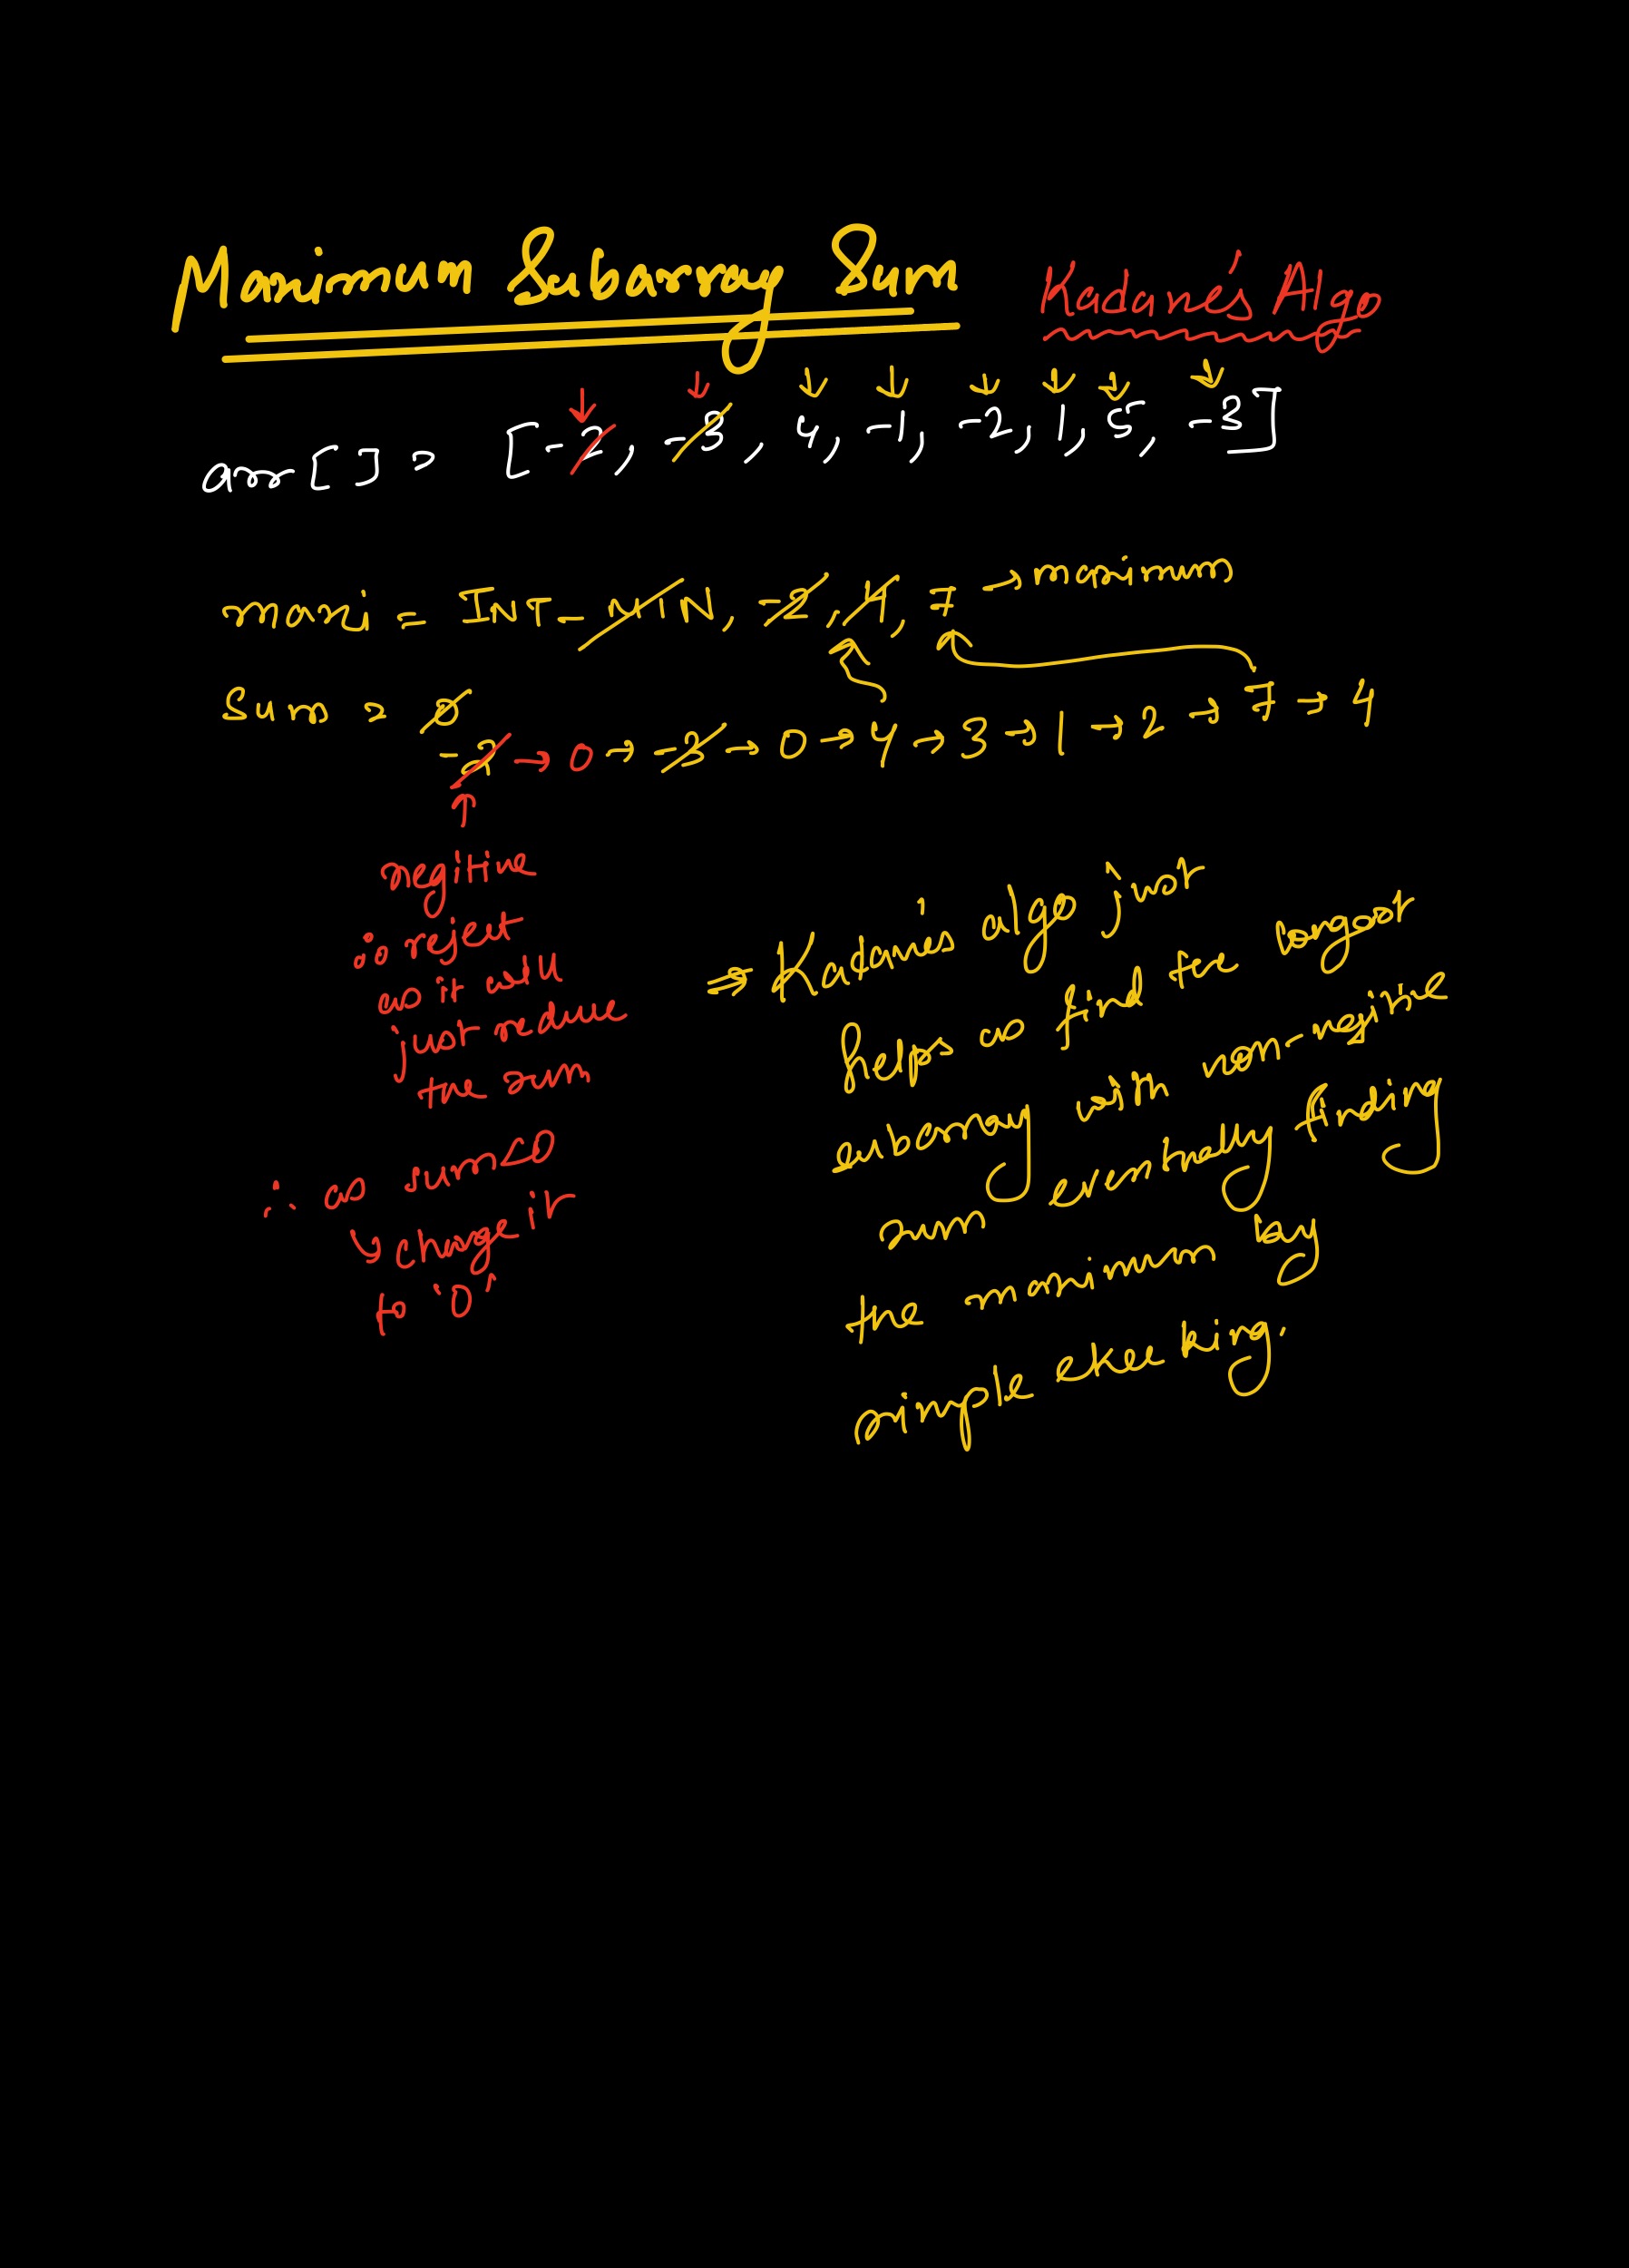 Maximum Subarray Sum Kadane's Algo
arr[] = [-2, -3, 4, -1, -2, 1, 5, -3]
maxi = INT_MIN, -2, 4, 7 → maximum
Sum = 0
-2 → 0 → -3 → 0 → 4 → 3 → 1 → 2 → 7 → 4
negitive
∴ reject
as it will
just reduce
the sum
∴ as sum<0
↳ change it
to '0'
⇒ Kadane's algo just
helps us find the longest
subarray with non-negitive
sum eventually finding
the maximum by
simple checking.